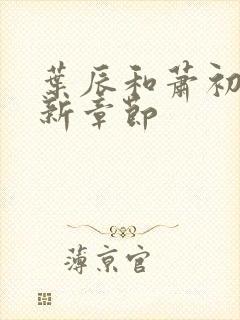 葉辰和蕭初
新章節
薄京官